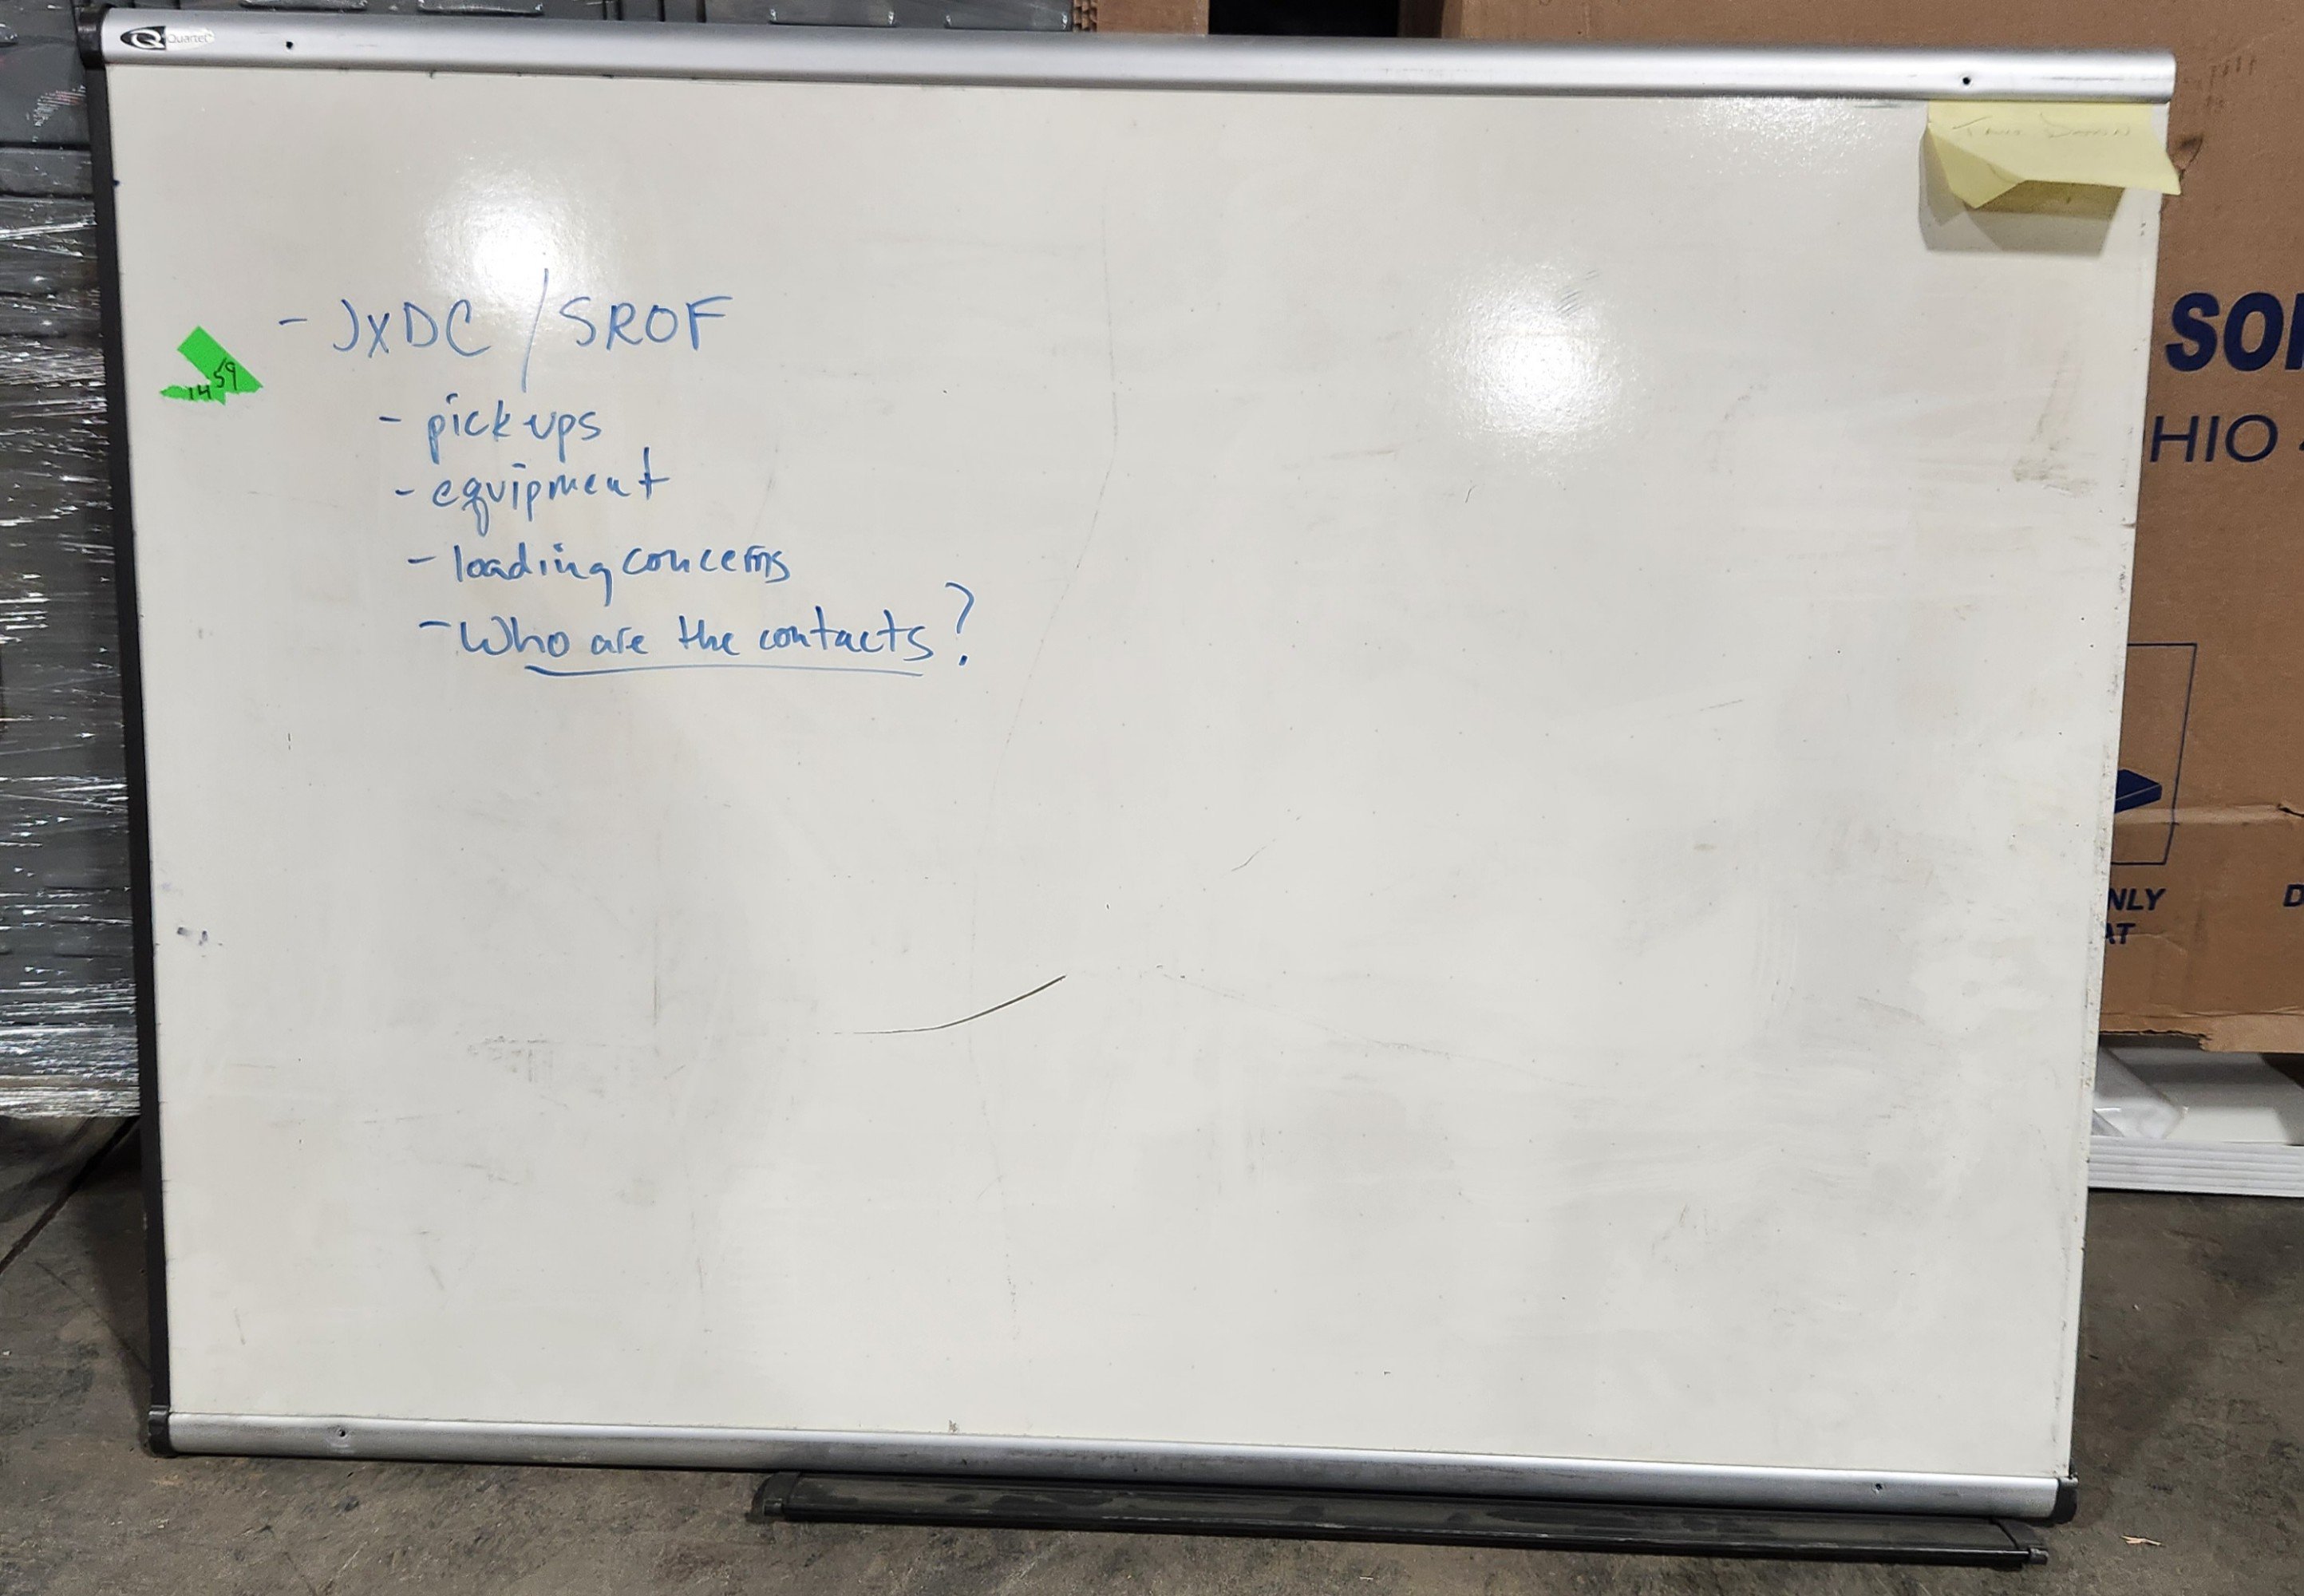 Quartet
- JXDC / SROF
- pickups
- equipment
- loading concerns
- Who are the contacts?
59
14
SO
HIO
NLY
AT
D